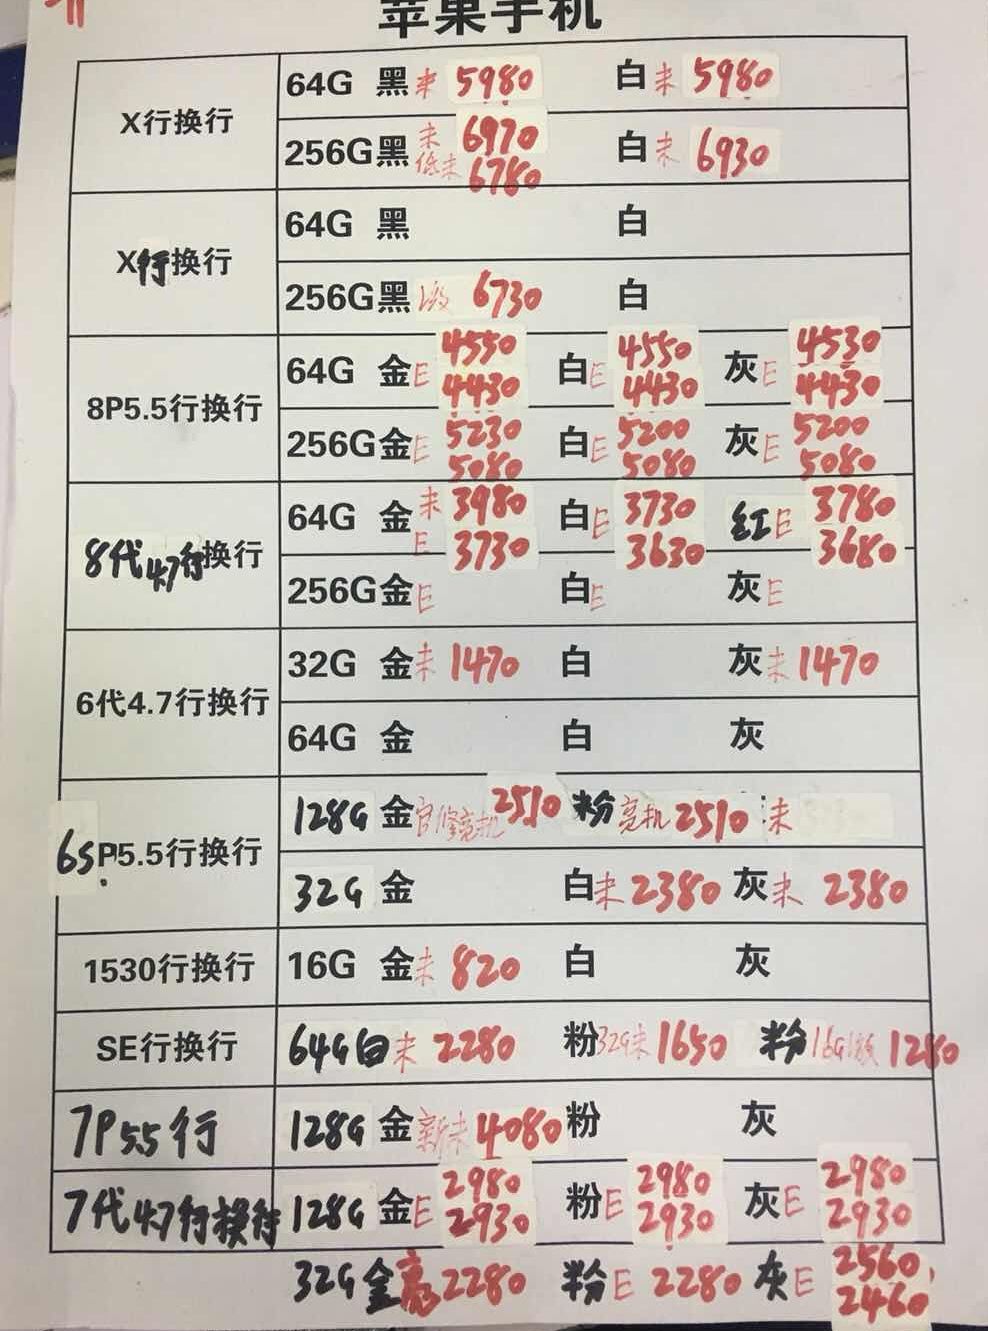 苹果手机
X行换行
64G 黑 未 5980 白 未 5980
256G 黑 未 6970 低未 6780 白 未 6930
X行换行
64G 黑 白
256G 黑 6730 白
8P5.5行换行
64G 金 E 4550 4430 白 E 4550 4430 灰 E 4530 4430
256G 金 E 5230 5080 白 E 5200 5080 灰 E 5200 5080
8代4.7行换行
64G 金 未 3980 E 3730 白 E 3730 3630 红 E 3780 3680
256G 金 E 白 E 灰 E
6代4.7行换行
32G 金 未 1470 白 灰 未 1470
64G 金 白 灰
6SP5.5行换行
128G 金 官修亮机 2510 粉 亮机 2510 未
32G 金 白 未 2380 灰 未 2380
1530行换行
16G 金 未 820 白 灰
SE行换行
64G 白 未 2280 粉 32G未 1650 粉 16G 1280
7P55行
128G 金 新未 4080 粉 灰
7代4.7行换行
128G 金 E 2980 2930 粉 E 2980 2930 灰 E 2980 2930
32G 金 亮 2280 粉 E 2280 灰 E 2560 2460